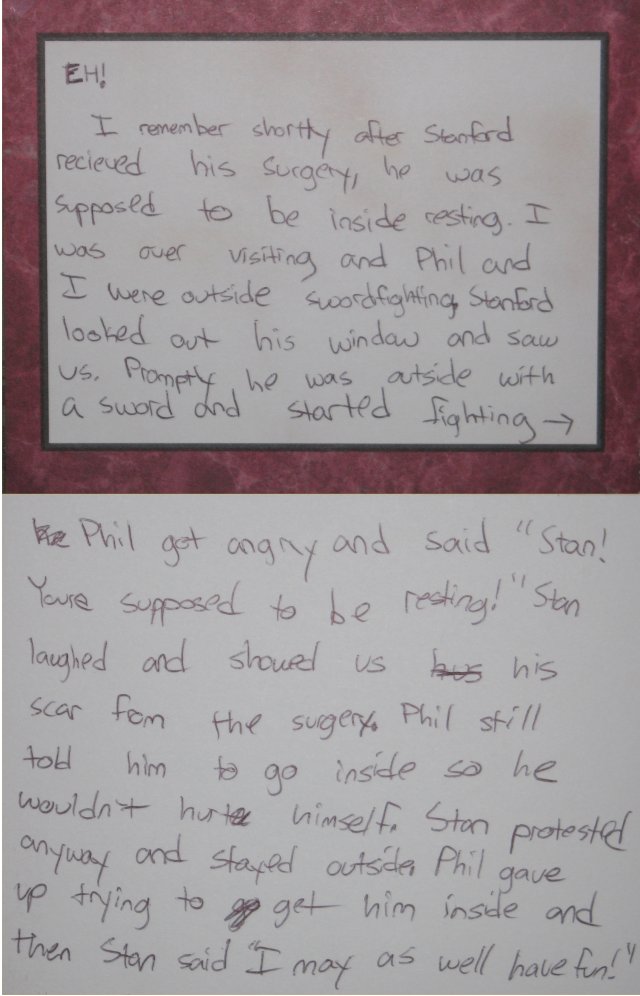 EH!
I remember shortly after Stanford
recieved his surgery, he was
supposed to be inside resting. I
was over visiting and Phil and
I were outside swordfighting, Stanford
looked out his window and saw
us. Promptly he was outside with
a sword and started fighting →
Phil got angry and said "Stan!
Youre supposed to be resting!" Stan
laughed and showed us his
scar from the surgery. Phil still
told him to go inside so he
wouldn't hurt himself. Stan protested
anyway and stayed outside. Phil gave
up trying to get him inside and
then Stan said "I may as well have fun!"